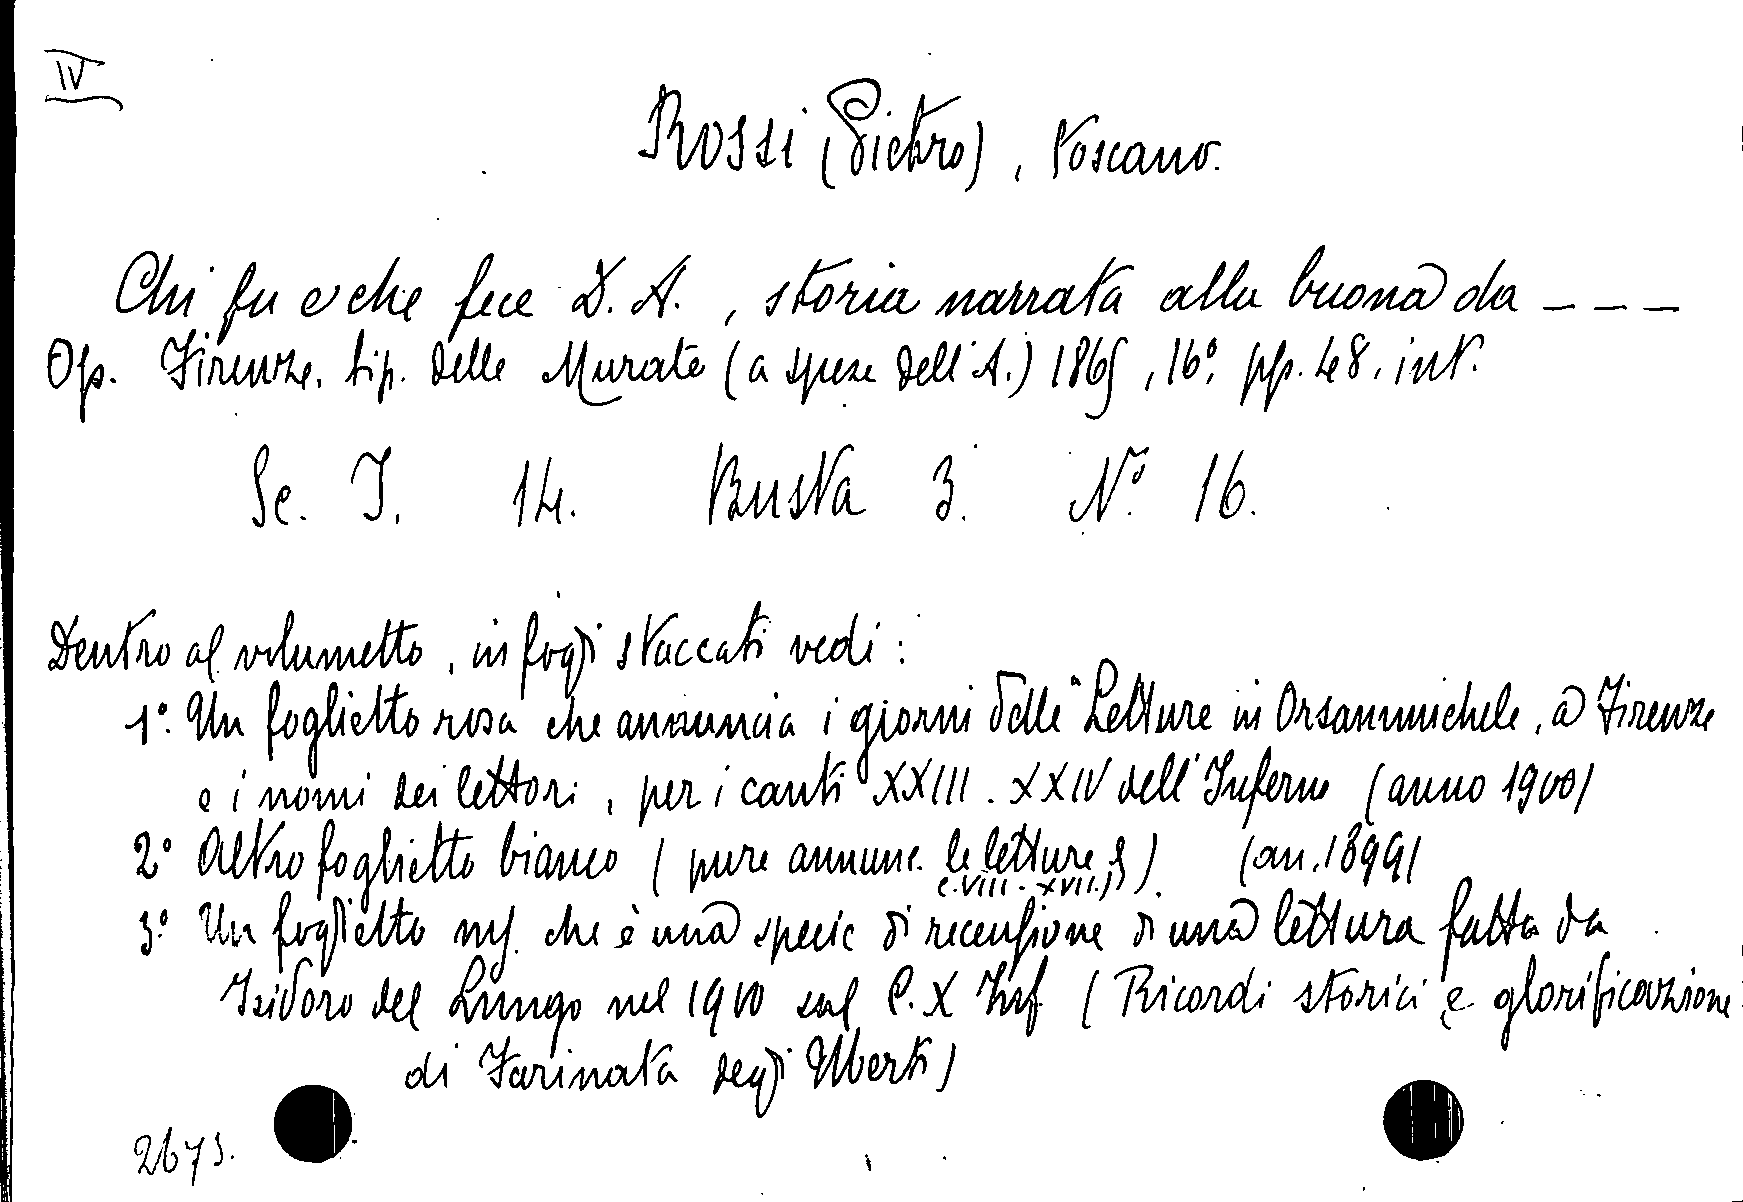 IV
Rossi (Pietro), Toscano.
Chi fu e che fece D. A., storia narrata alla buona da ----
Op. Firenze. tip. delle Murate (a spese dell'A.) 1865, 16°. pp. 48. int.
Sc. I. 14. Busta 3. N° 16.
Dentro al volumetto, in fogli staccati vedi:
1°. Un foglietto rosa che annuncia i giorni delle "Letture in Orsanmichele, a Firenze
e i nomi dei lettori, per i canti XXIII. XXIV dell'Inferno (anno 1900)
2° Altro foglietto bianco (pure annunc. le letture) (an. 1899)
c. VIII - XVII.
3° Un foglietto ms. che è una specie di recensione di una lettura fatta da
Isidoro del Lungo nel 1900 sul C. X Inf (Ricordi storici e glorificazione
di Farinata degli Uberti)